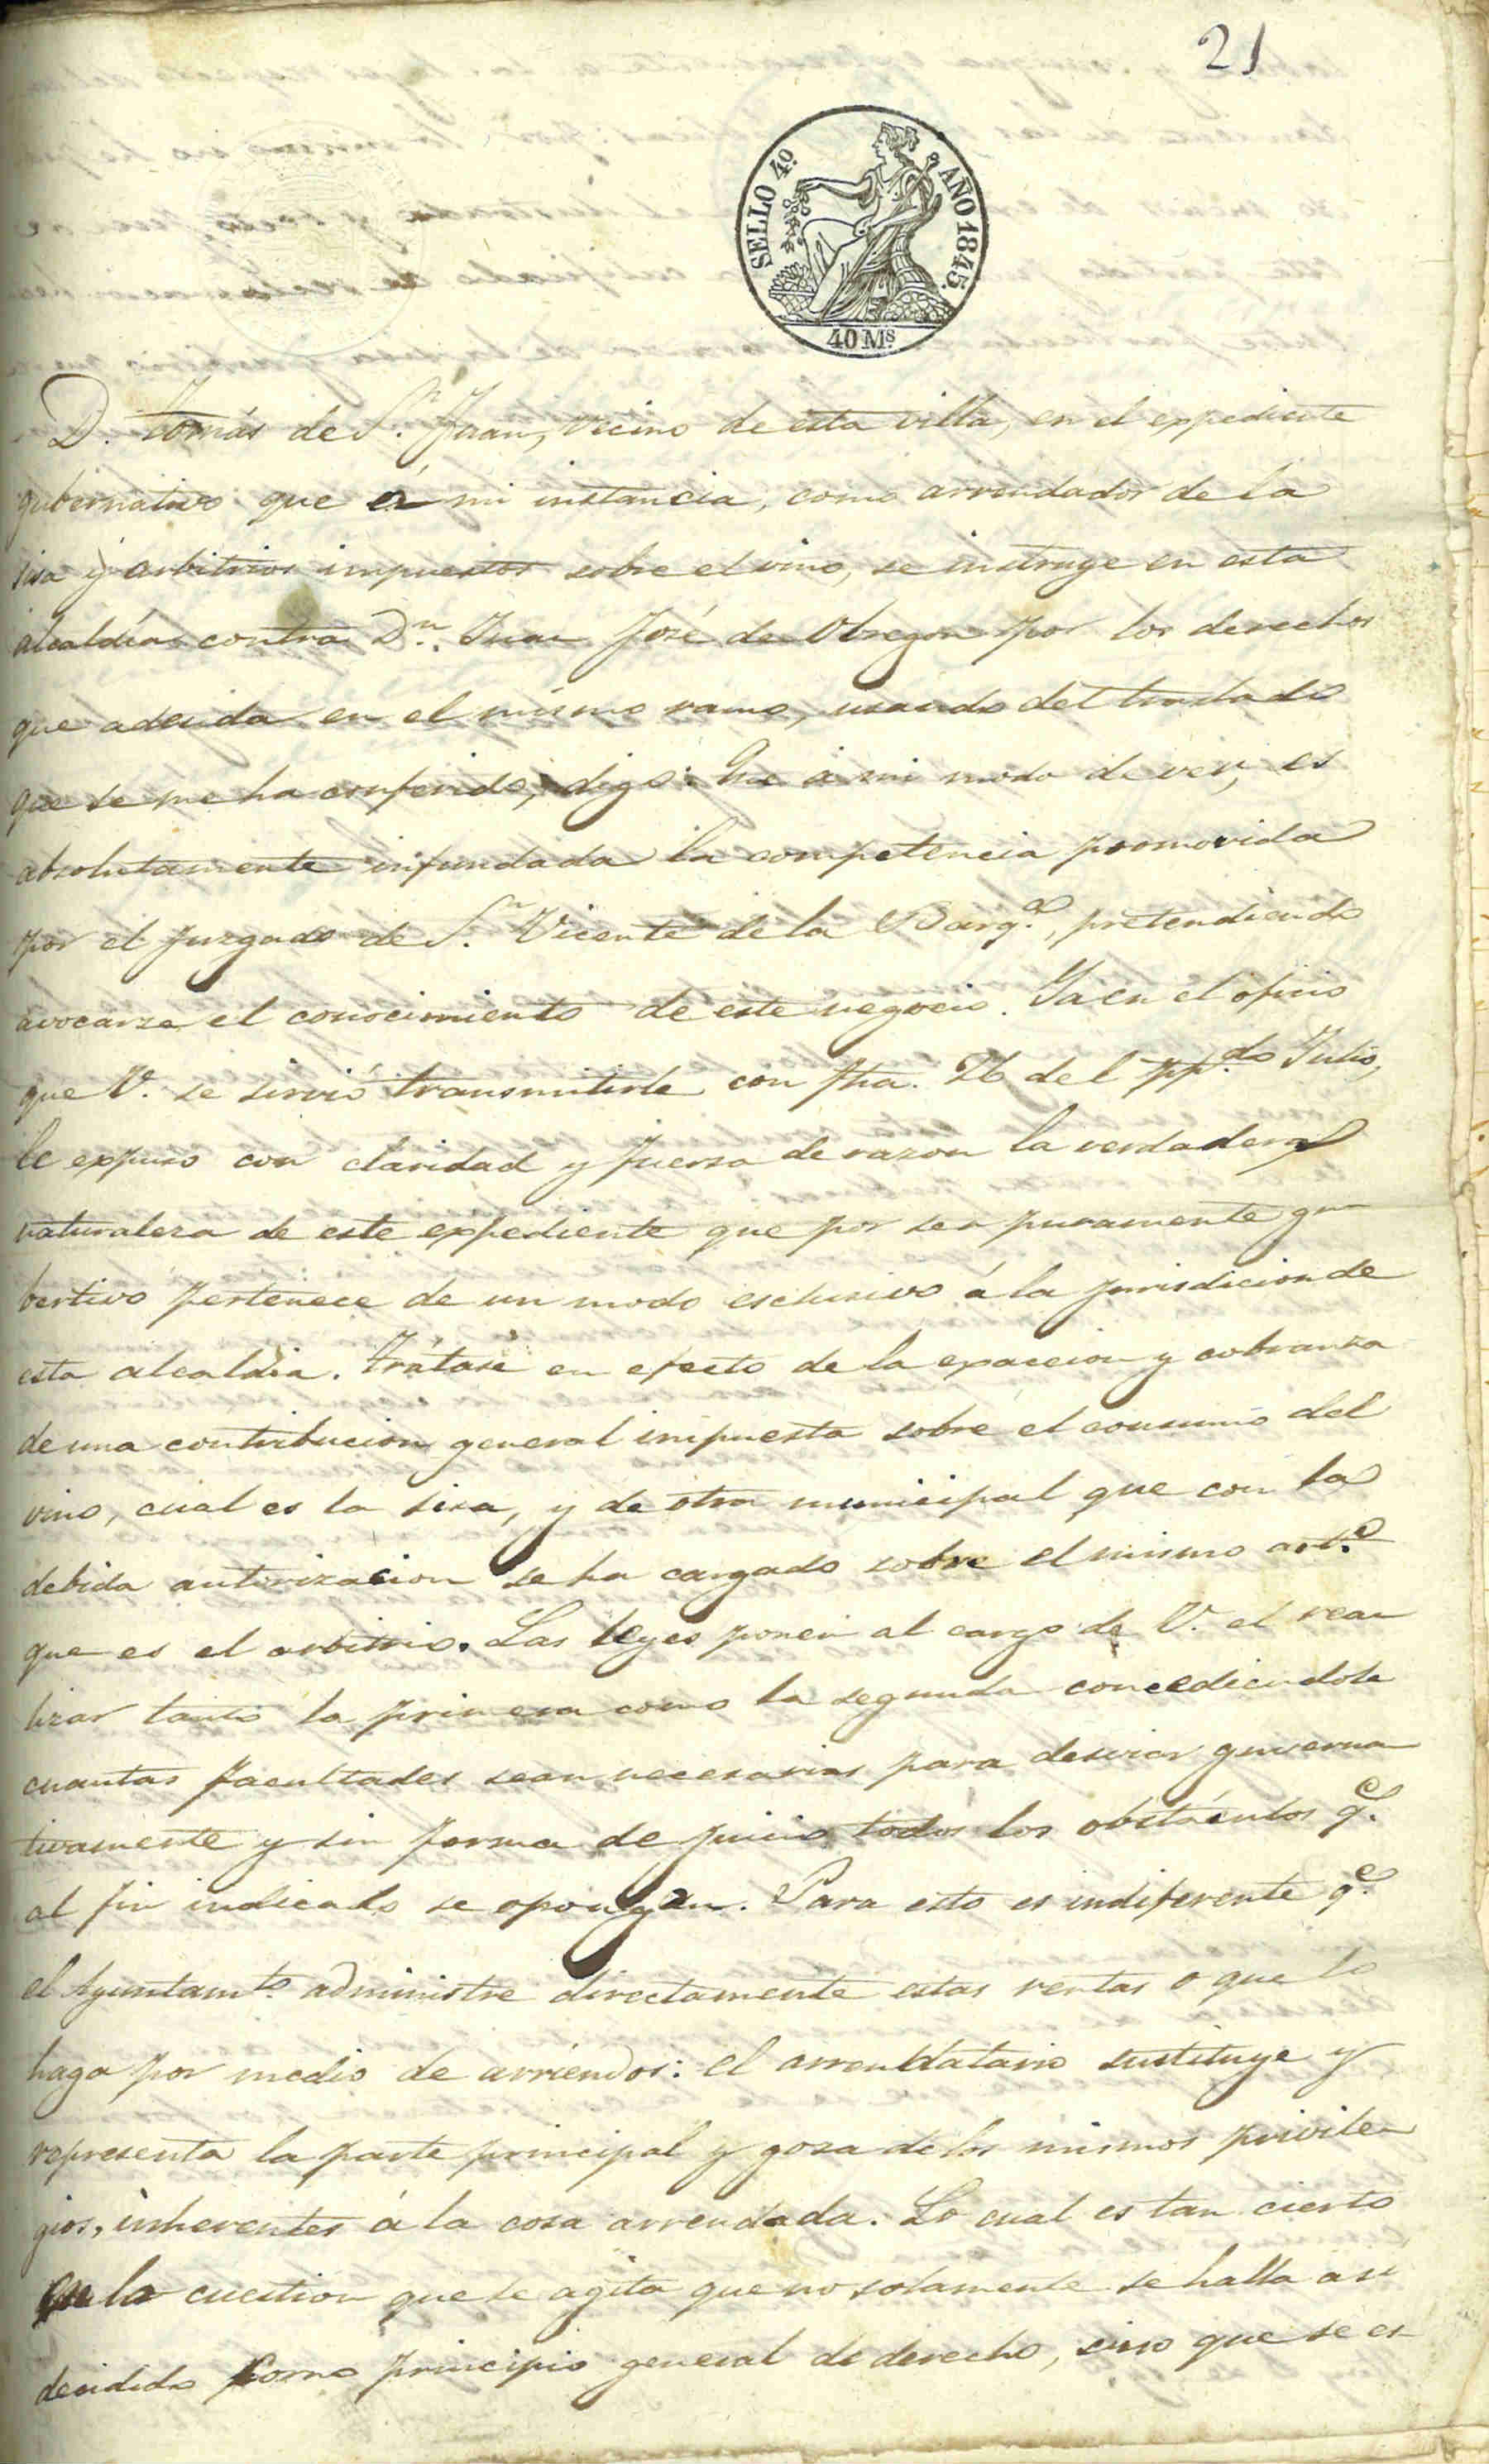 21
SELLO 4º. AÑO 1845.
40 Ms
D. Tomás de S.n Juan, vecino de esta villa, en el expediente
gubernativo que á mi instancia, como arrendador de la
sisa y arbitrios impuestos sobre el vino, se instruye en esta
alcaldía contra D.n Juan José de Obregon por los derechos
que adeuda en el mismo ramo, usando del traslado
que se me ha conferido, digo: Que á mi modo de ver, es
absolutamente infundada la competencia promovida
por el juzgado de S.n Vicente de la Barq.a, pretendiendo
avocarse el conocimiento de este negocio. Ya en el oficio
que V. se sirvió transmitirle con fha. 26 del pp.do Julio,
le expuso con claridad y fuerza de razon la verdadera
naturaleza de este expediente que por ser puramente gu
bertivo pertenece de un modo esclusivo á la jurisdicion de
esta alcaldía. Trátase en efecto de la exaccion y cobranza
de una contribucion general impuesta sobre el consumo del
vino, cual es la sisa, y de otra municipal que con la
debida autorizacion se ha cargado sobre el mismo art.o
que es el arbitrio. Las leyes ponen al cargo de V. el rea
lizar tanto la primera como la segunda concediendole
cuantas facultades sean necesarias para desviar guverna
tivamente y sin forma de juicio todos los obstáculos q.e
al fin indicado se opongan. Para esto es indiferente q.e
el Ayuntam.to administre directamente estas rentas o que lo
haga por medio de arriendos: el arrendatario sustituye y
representa la parte principal y goza de los mismos privile
gios, inherentes á la cosa arrendada. Lo cual es tan cierto
en la cuestion que se agita que no solamente se halla asi
decidido como principio general de derecho, sino que se es